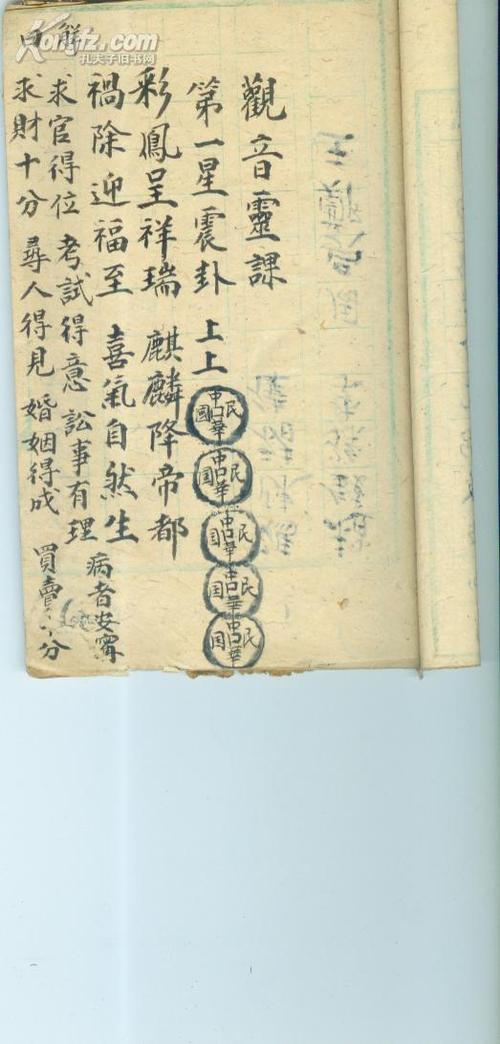 觀音靈課
第一星震卦 上上
中華民國
中華民国
中華民国
中華民国
中華民国
彩鳳呈祥瑞 麒麟降帝都
禍除迎福至 喜氣自然生
解曰
求官得位 考試得意 訟事有理 病者安寧
求財十分 尋人得見 婚姻得成 買賣 分
Kongfz.com
孔夫子旧书网